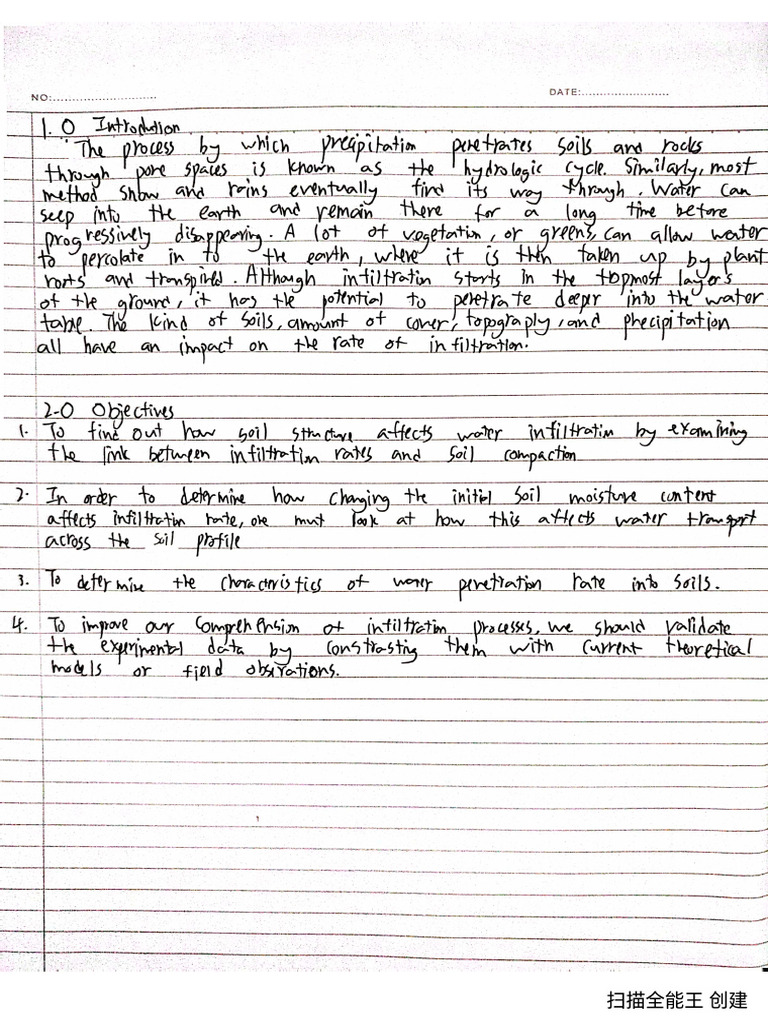 NO:
DATE:
1.0 Introdution
The process by which precipitation penetrates soils and rocks
through pore spaces is known as the hydrologic cycle. Similarly, most
method snow and rains eventually find its way through. Water can
seep into the earth and remain there for a long time before
progressively disappearing. A lot of vegetation, or greens, can allow water
to percolate in to the earth, where it is then taken up by plant
roots and transpired. Although infiltration starts in the topmost layers
of the ground, it has the potential to penetrate deeper into the water
table. The kind of soils, amount of cover, topograply, and precipitation
all have an impact on the rate of infiltration.
2-0 Objectives
1. To find out how soil structure affects water infiltration by examining
the link between infiltration rates and soil compaction
2. In order to determine how changing the initial soil moisture content
affects infiltration rate, one must look at how this affects water transport
across the soil profile
3. To determine the characteristics of water penetration rate into soils.
4. To improve our comprehension of infiltration processes, we should validate
the experimental data by constrasting them with current theoretical
models or field obsirations.
扫描全能王 创建